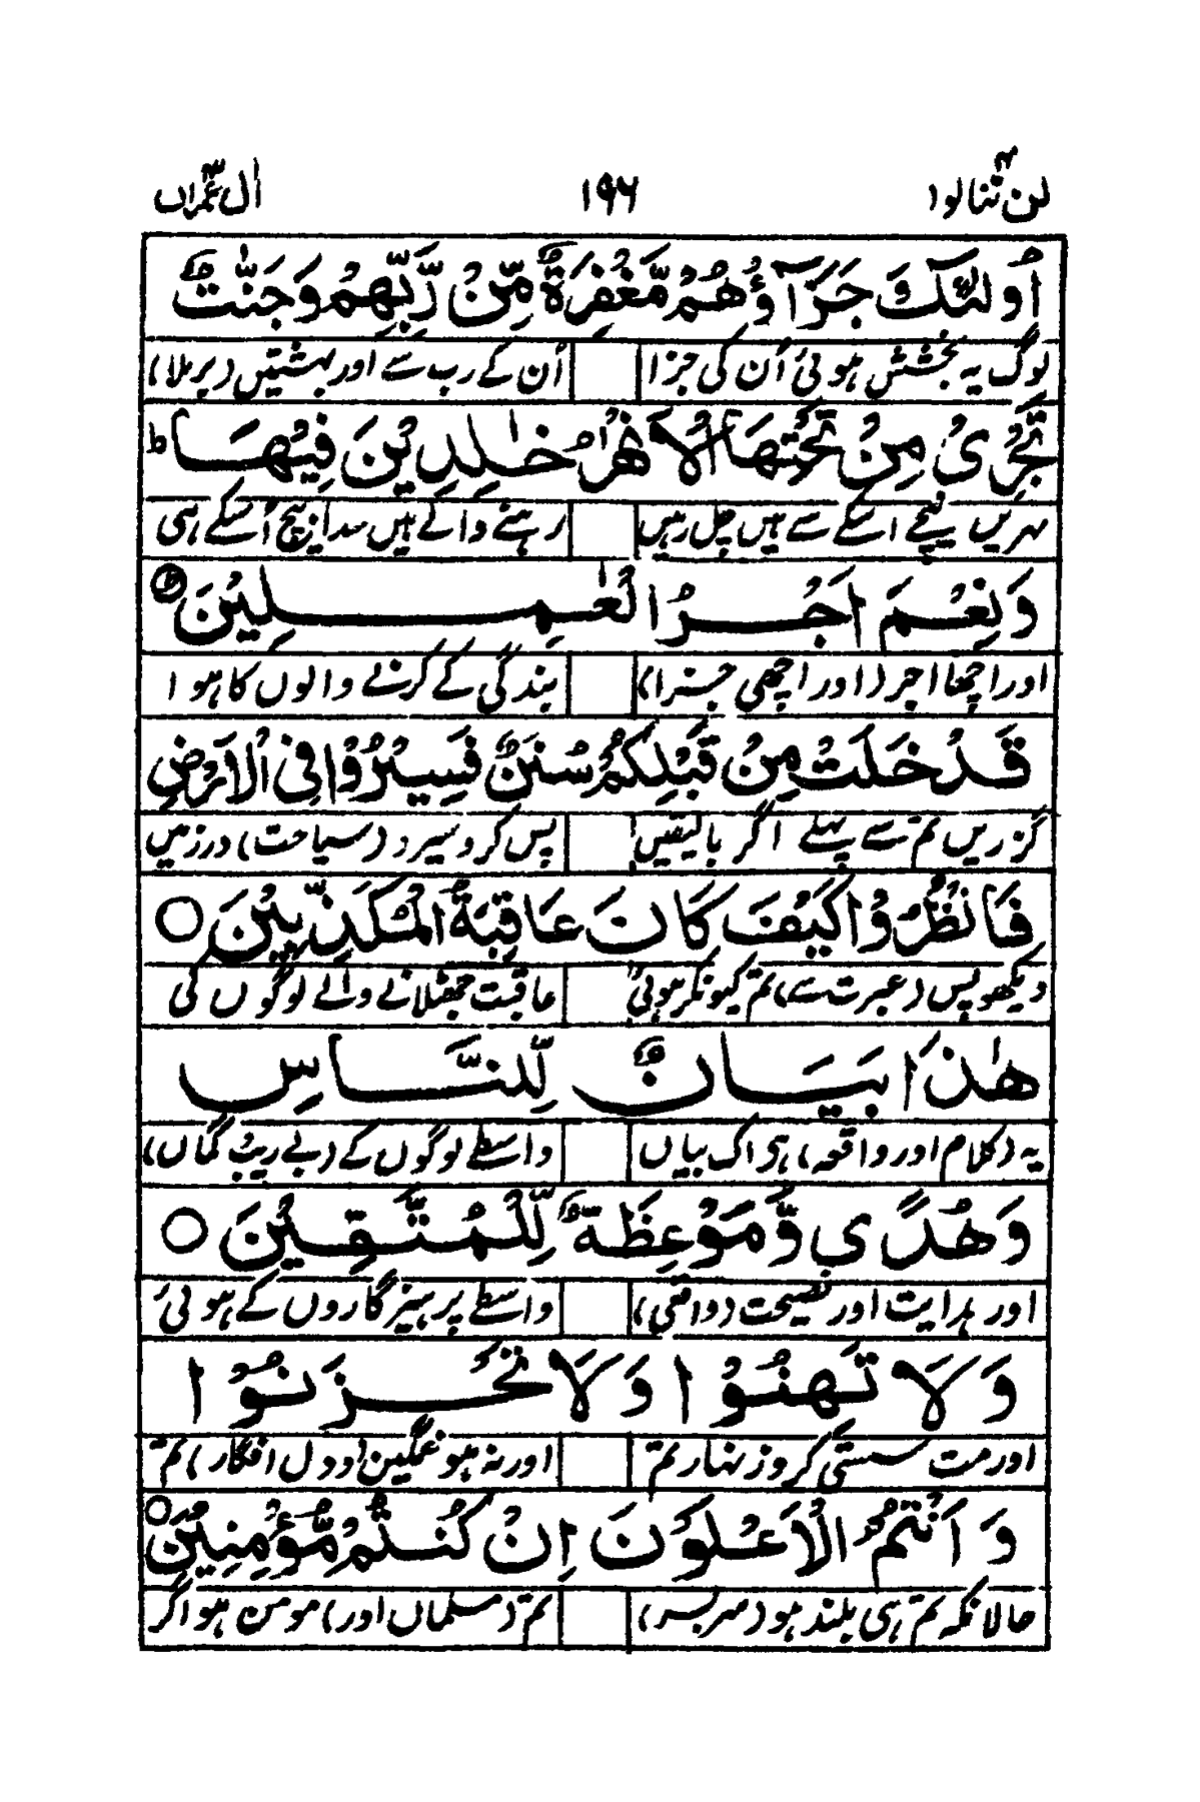 لن تنالوا ۴ ۱۹۶ اٰل عمرٰن ۳
اُولٰٓئِكَ جَزَآؤُهُمْ مَّغْفِرَةٌ مِّنْ رَّبِّهِمْ وَجَنّٰتٌ
لوگ یہ بخشش ہوئی اُن کی جزا اُن کے رب سے اور بہشتیں (برملا)
تَجْرِیْ مِنْ تَحْتِهَا الْاَنْهٰرُ خٰلِدِیْنَ فِیْهَا ط
نہریں نیچے اسکے سے ہیں چل رہیں رہنے والے ہیں سدا بیچ اُسکے ہی
وَنِعْمَ اَجْرُ الْعٰمِلِیْنَ ط
اور اچھا اجر (اور اچھی جزا) بندگی کے کرنے والوں کا ہوا
قَدْ خَلَتْ مِنْ قَبْلِكُمْ سُنَنٌ فَسِیْرُوْا فِی الْاَرْضِ
گزریں تم سے پہلے اگر بالیقیں پس کرو سیر و (سیاحت) در زمیں
فَانْظُرُوْا كَیْفَ كَانَ عَاقِبَةُ الْمُكَذِّبِیْنَ ○
دیکھو پس (عبرت سے) تم کیونکر ہوئی عاقبت جھٹلانے والے لوگوں کی
هٰذَا بَیَانٌ لِّلنَّاسِ
یہ (کلام اور واقعہ) ہی اک بیاں واسطے لوگوں کے (بے ریب گماں)
وَهُدًی وَّمَوْعِظَةٌ لِّلْمُتَّقِیْنَ ○
اور ہدایت اور نصیحت (واقعی) واسطے پرہیزگاروں کے ہوئی
وَلَا تَهِنُوْا وَلَا تَحْزَنُوْا
اور مت سستی کرو زنہار تم اور نہ ہو غمگین (و دل افگار) تم
وَ اَنْتُمُ الْاَعْلَوْنَ اِنْ كُنْتُمْ مُّؤْمِنِیْنَ ○
حالانکہ تم ہی بلند ہو (سربسر) تم (مسلماں اور) مومن ہو اگر